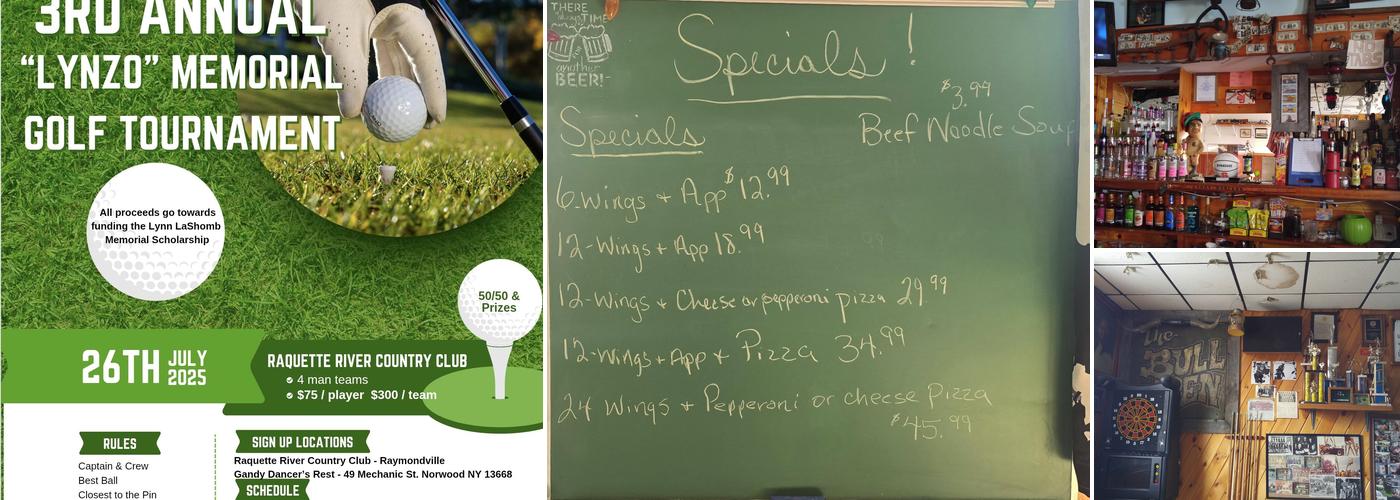 3RD ANNUAL
“LYNZO” MEMORIAL
GOLF TOURNAMENT
All proceeds go towards
funding the Lynn LaShomb
Memorial Scholarship
50/50 &
Prizes
26TH JULY
2025
RAQUETTE RIVER COUNTRY CLUB
4 man teams
$75 / player $300 / team
RULES
Captain & Crew
Best Ball
Closest to the Pin
SIGN UP LOCATIONS
Raquette River Country Club - Raymondville
Gandy Dancer's Rest - 49 Mechanic St. Norwood NY 13668
SCHEDULE
THERE
always TIME
another
BEER!
Specials!
$3.99
Beef Noodle Soup
Specials
6-Wings + App $12.99
12-Wings + App 18.99
12-Wings + Cheese or pepperoni pizza 29.99
12-Wings + App + Pizza 34.99
24 Wings + Pepperoni or cheese Pizza
$45.99
NO
TABS
The
BULL
PEN